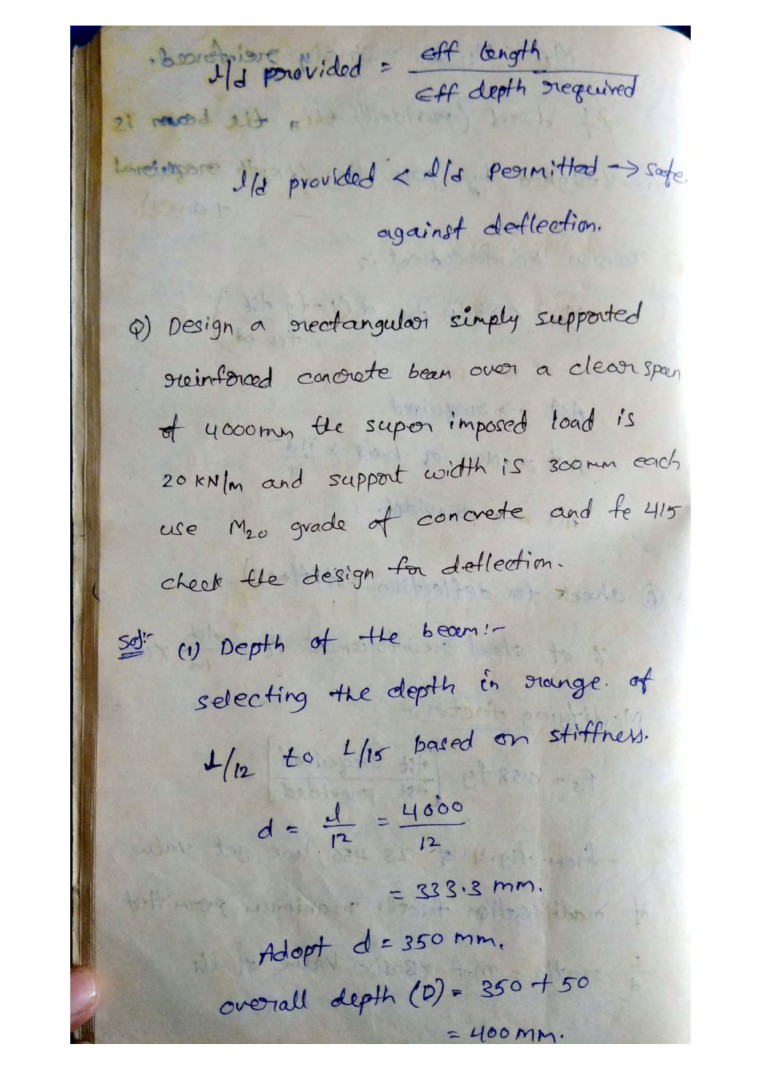 l/d provided = Eff length / Eff depth required
l/d provided < l/d permitted → safe.
against deflection.
Q) Design a rectangular simply supported
reinforced concrete beam over a clear span
of 4000mm the super imposed load is
20 KN/m and support width is 300mm each
use M20 grade of concrete and fe 415
check the design for deflection.
Sol:- (1) Depth of the beam:-
selecting the depth in range. of
L/12 to L/15 based on stiffness.
d = l/12 = 4000/12
= 333.3 mm.
Adopt d = 350 mm.
overall depth (D) = 350 + 50
= 400mm.